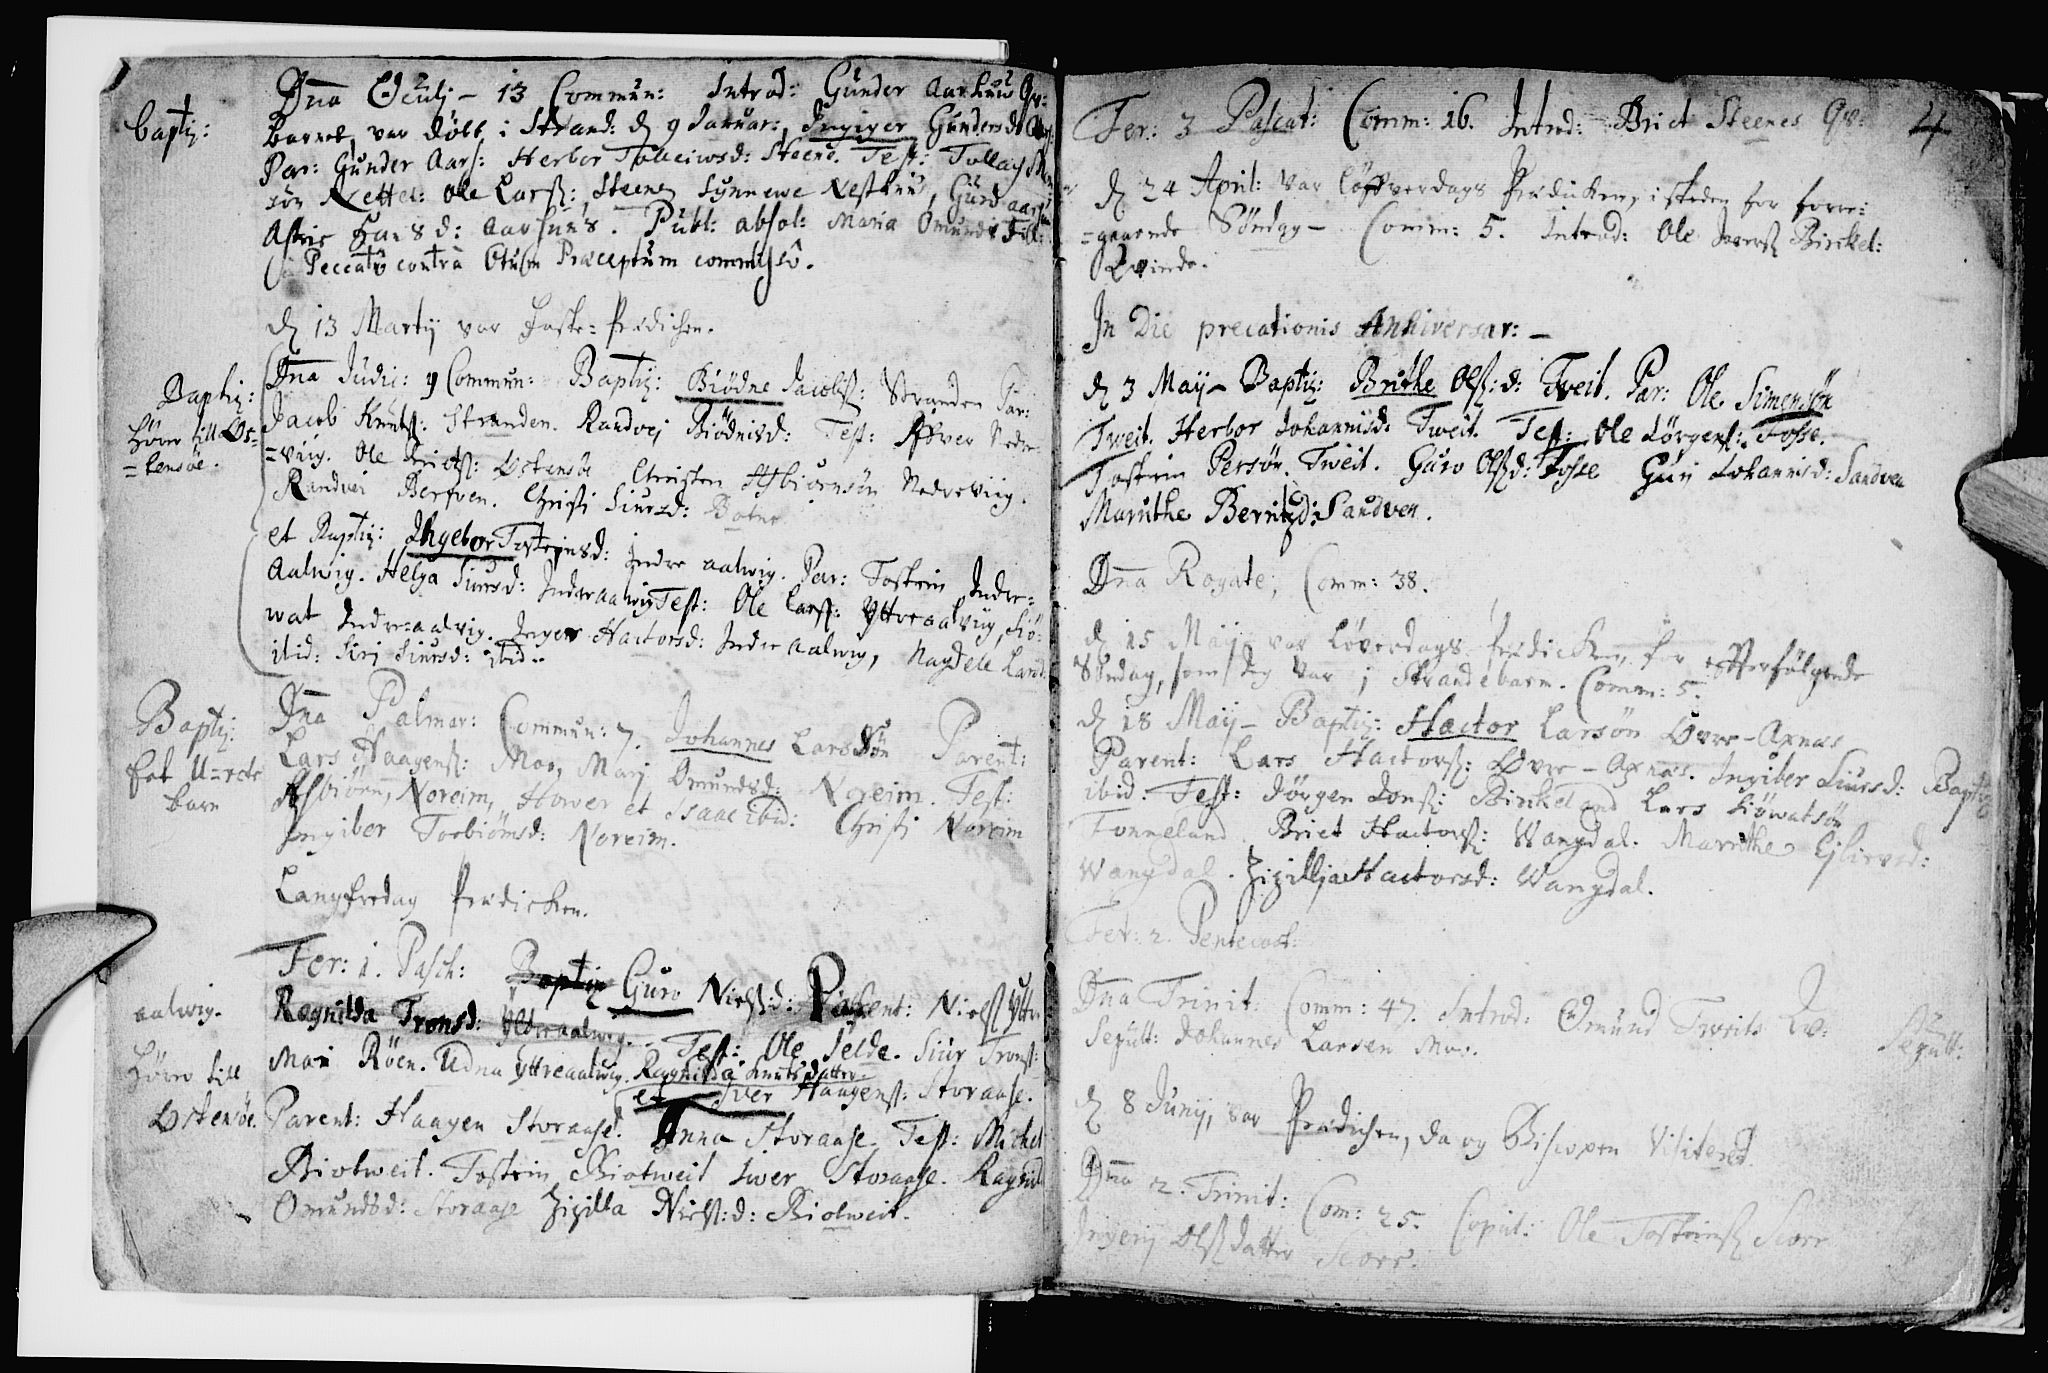 Dna Oculj - 13 Commun: Introd: Gunder Aarhuus Qv:
baptiz:
barnet var döbt i Strand: d 9 Januar: Ingiger Gundersd
Par: Gunder Aars: Herbor Tolleiwsd: Steene. Test: Tollag
sön Nettel: Ole Larss: Steene Synnewe Nesthuus, Guro Aarhus
Astris Hansd: Aarhuus. Publ: absol: Maria Omunds
Peccatô contra 6tum Præceptum commissô.
d 13 Martij var Faste=Prædichen.
Dna Judic: 9 Commun: Baptiz: Biödne Jacobss: Stranden Par:
Baptiz:
Hörer till Os=
=tensöe.
Jacob Knuts: Stranden. Randvej Biödnisd: Test: Nedre
=viig. Ole Ostensöe Christen Asbiörnsön Nedreviig.
Randvei Berfven. Christi Siursd: Botne
et Baptiz: Ingebor Tosteinsd: Indre aalwig. Par: Tostein Indre=
Aalwig. Helga Siursd: Indreaalwig Test: Ole Larss: Yttreaalviig, Siö=
wat Indreaalvig. Inger Hactorsd: Indre aalwig, Magdele Larsd:
ibid: Siri Siursd: ibid.
Dna Palmar: Commun: 7. Johannes Larssön Parent:
Baptiz:
Et U=ecte
barn
Lars Haagens: Moe, Marj Omundsd: Noreim. Test:
Asbiörn, Noreim, Hower et Isaac ibid: Christi Noreim
Ingiber Torbiörnsd: Noreim.
Langfredag Prædicken.
Fer: 1. Pasch: Baptiz Guro Nielsd: Parent: Niels Yttre
aalwig.
Ragnilda Tronsd: Yttreaalwig. Test: Ole Selde. Siur Trons:
Hörer till
Ostensöe.
Mari Röen. Udna Yttreaalwig. Ragnilda Knutsdatter
et Iver Haagens: Storaase.
Parent: Haagen Storaase. Anna Storaase Test: Michel
Biotweit. Tostein Biotweit Iwer Storaase. Ragnild
Omundsd: Storaase Zizilla Niels:d: Biotweit.
4
Fer: 3 Pascat: Comm: 16. Introd: Brict Steenes Qv:
d 24 April: var Löffverdags Prædicken, i steden for forre=
=gaaende Söndag - Comm: 5. Introd: Ole Iverss Birckel:
Qvinde.
In Die precationis Anniversar: -
d 3 May - Baptiz: Brithe Ols:d: Tweit. Par: Ole Simensön
Tweit. Herbor Johannisd: Tweit. Test: Ole Jörgens: Fosse.
Tostein Persön. Tweit. Guro Olsd: Fosse Guri Johannisd: Sandven
Marithe Berntzd: Sandven.
Dna Rogate, Comm: 38.
d 15 Maij var Löverdags Prædicken, for effterfölgende
Söndag, som jeg var i Strandebarm. Comm: 5.
d 18 Maij - Baptiz: Hactor Larsön Övre-Axnæs
Baptiz
Parent: Lars Hactorss: Övre-Axnæs. Ingiber Siursd:
ibid. Test: Jörgen Jons: Birkeland Lars Siöwatsön
Tonneland Brict Hactorss: Wangdal. Marithe Ejlievsd:
Wangdal. Zizillja Hactorsd: Wangdal.
Fer: 2. Pentecost:
Dna Trinit: Comm: 47. Introd: Omund Tweits Qv:
Sepult:
Sepult: Johannes Larsen Moe.
d 8 Junij, var Prædichen, da og Bispen Visitered.
Dna 2. Trinit: Com: 25. Copul: Ole Tosteinss Scare
Ingerij Olssdatter Scare.